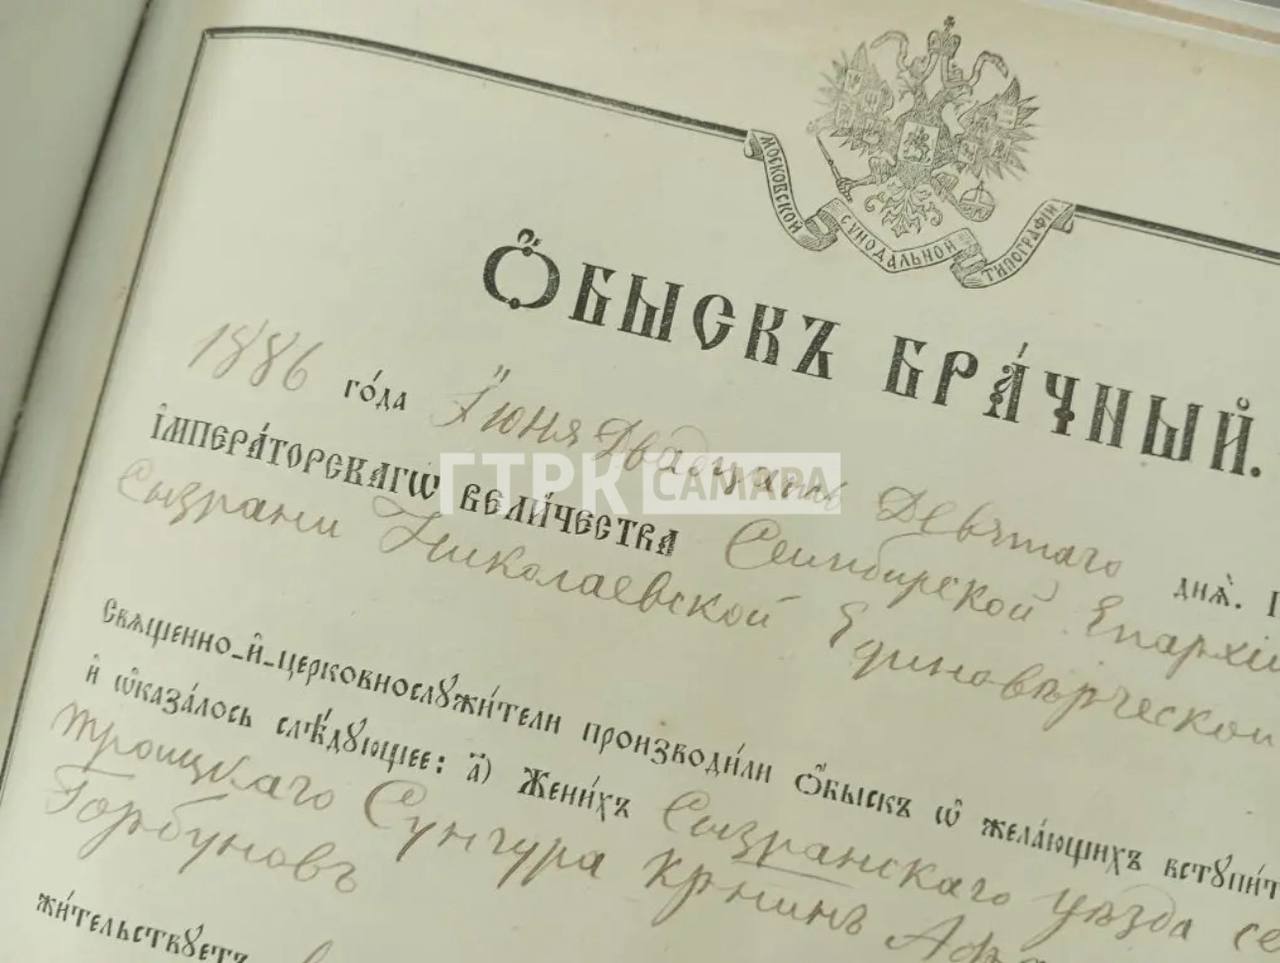 МОСКОВСКОЙ СѴНОДАЛЬНОЙ ТИПОГРАФІИ
Ѻ҆БЫСКЪ БРА́ЧНЫЙ.
1886 го́да Іюня Двадцать Девятаго днѧ̀.
І҆МПЕРА́ТОРСКАГѠ ВЕЛИ́ЧЕСТВА Симбирской Епархіи
Сызрани Николаевской Единовѣрческой
Свѧще́нно-и҆-церковнослꙋжи́тели производи́ли Ѻ҆быскъ ѡ҆ жела́ющихъ вступи́т
и҆ ѡ҆каза́лось слѣ́дꙋющее: а҃) Жени́хъ Сызранскаго уѣзда се
троицкаго Сунгура крнинъ
Горбуновъ
жи́тельствꙋетъ
ГТРК САМАРА